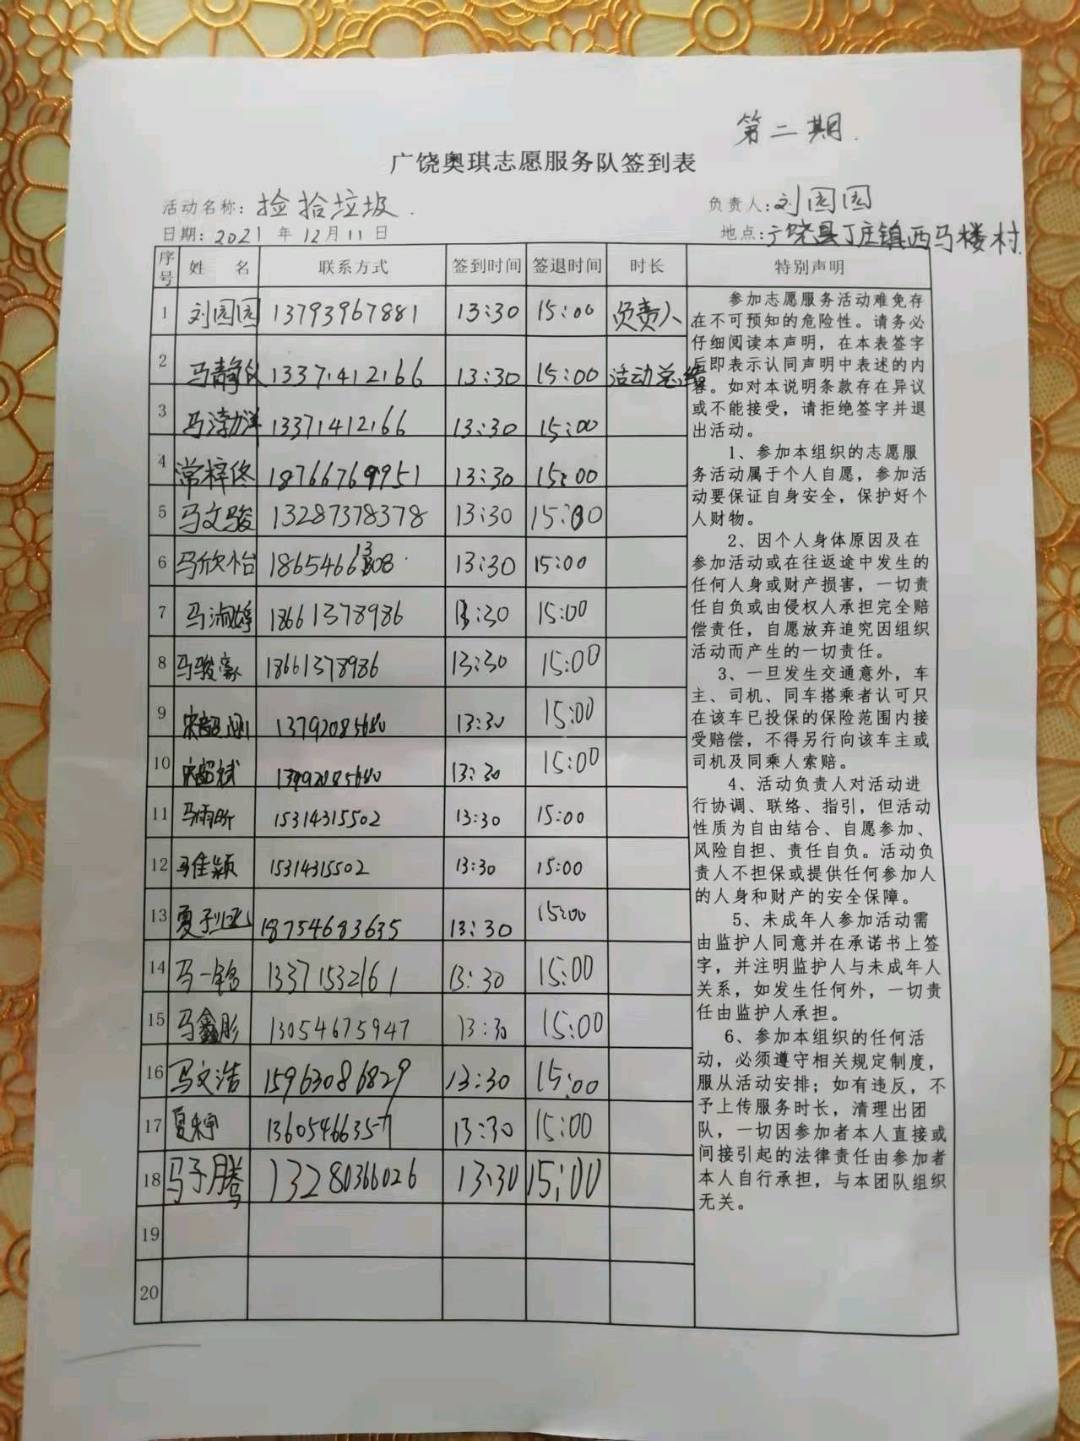 第二期.
广饶奥琪志愿服务队签到表
活动名称: 捡拾垃圾. 负责人:刘园园
日期: 2021 年 12月11日 地点:广饶县丁庄镇西马楼村.
序号 姓 名 联系方式 签到时间 签退时间 时长 特别声明
1 刘园园 13793967881 13:30 15:00 负责人
2 马静仪 13371412166 13:30 15:00 活动总结
3 马渤洋 13371412166 13:30 15:00
4 常梓佟 18766769951 13:30 15:00
5 马文骏 13287378378 13:30 15:00
6 马欣怡 13:30 15:00
7 马淑婷 18661378986 13:30 15:00
8 马骏豪 18661378986 13:30 15:00
9 13792085680 13:30 15:00
10 13:30 15:00
11 马雨昕 15314315502 13:30 15:00
12 马佳颖 15314315502 13:30 15:00
13 夏 18754683635 13:30 15:00
14 马一铭 13371532161 13:30 15:00
15 马鑫彤 13054675947 13:30 15:00
16 马文浩 15963086829 13:30 15:00
17 夏 13605466357 13:30 15:00
18 马子腾 13280366026 13:30 15:00
19
20
参加志愿服务活动难免存
在不可预知的危险性。请务必
仔细阅读本声明，在本表签字
后即表示认同声明中表述的内
容。如对本说明条款存在异议
或不能接受，请拒绝签字并退
出活动。
1、参加本组织的志愿服
务活动属于个人自愿，参加活
动要保证自身安全，保护好个
人财物。
2、因个人身体原因及在
参加活动或在往返途中发生的
任何人身或财产损害，一切责
任自负或由侵权人承担完全赔
偿责任，自愿放弃追究因组织
活动而产生的一切责任。
3、一旦发生交通意外，车
主、司机、同车搭乘者认可只
在该车已投保的保险范围内接
受赔偿，不得另行向该车主或
司机及同乘人索赔。
4、活动负责人对活动进
行协调、联络、指引，但活动
性质为自由结合、自愿参加、
风险自担、责任自负。活动负
责人不担保或提供任何参加人
的人身和财产的安全保障。
5、未成年人参加活动需
由监护人同意并在承诺书上签
字，并注明监护人与未成年人
关系，如发生任何外，一切责
任由监护人承担。
6、参加本组织的任何活
动，必须遵守相关规定制度，
服从活动安排；如有违反，不
予上传服务时长，清理出团
队，一切因参加者本人直接或
间接引起的法律责任由参加者
本人自行承担，与本团队组织
无关。